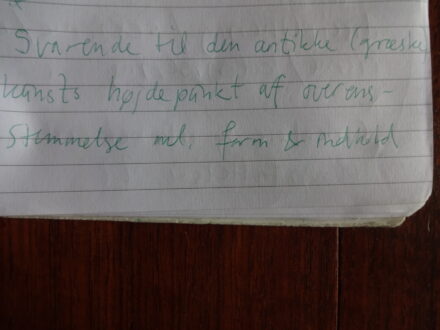 Svarende til den antikke (græske
kunsts højdepunkt af overens-
stemmelse ml. form & indhold